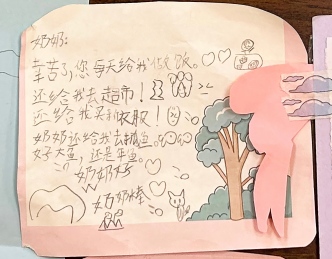 奶奶:
辛苦了,您每天给我做饭。
还给我去超市!
还给我买新衣服!
奶奶还给我去抓鱼。
好大蓝!还是草鱼。
奶奶好
奶奶棒